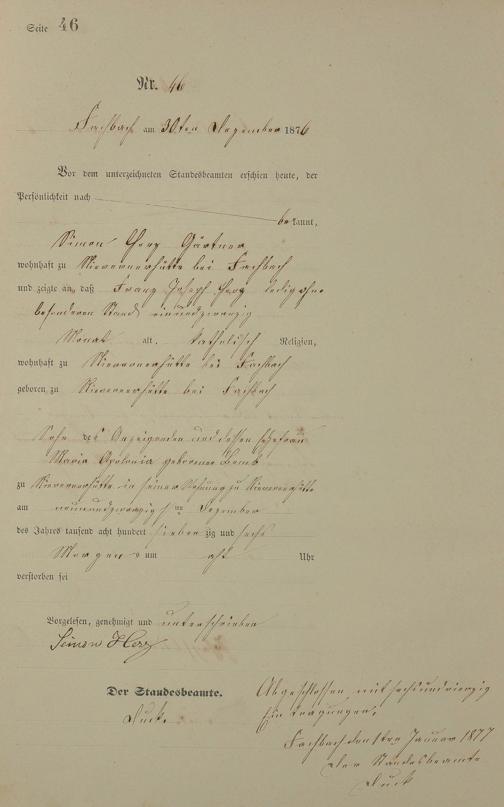 Seite 46
Nr. 46
Fachbach am 30ten Dezember 1876
Vor dem unterzeichneten Standesbeamten erschien heute, der
Persönlichkeit nach
bekannt,
Simon Herz Gärtner
wohnhaft zu Nievernerhütte bei Fachbach
und zeigte an, daß Franz Joseph Herz ledig ohne
besonderen Stand, einundzwanzig
Monat alt, katholischer Religion,
wohnhaft zu Nievernerhütte bei Fachbach
geboren zu Nievernerhütte bei Fachbach
Sohn des Anzeigenden und dessen Ehefrau
Maria Apolonia geborene
zu Nievernerhütte in seiner Wohnung zu Nievernerhütte
am neunundzwanzigsten Dezember
des Jahres tausend acht hundert siebenzig und sechs
Morgens um acht Uhr
verstorben sei
Vorgelesen, genehmigt und unterschrieben
Simon Herz
Der Standesbeamte.
Duck.
Abgeschlossen mit sechsundvierzig
Eintragungen,
Fachbach den 1ten Januar 1877
Der Standesbeamte
Duck